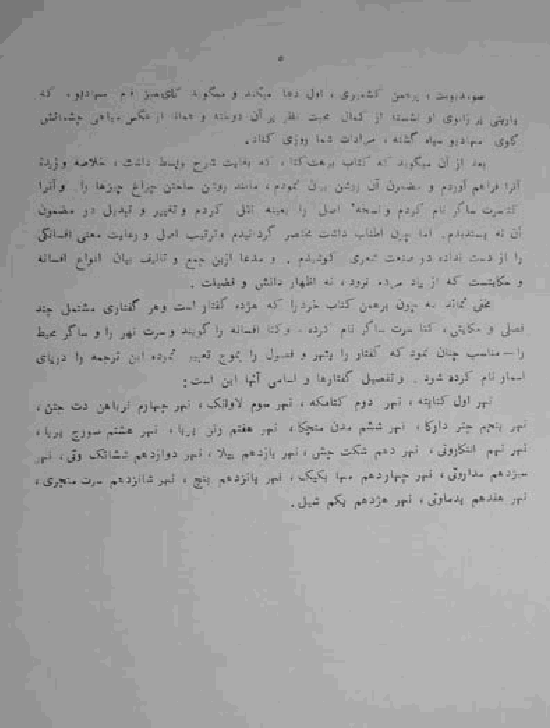 ۵
سومدیوبت، برهمن کشمیری، اول دعا میکند و میگوید که
پاربتی بر زانوی او نشسته از کمال محبت نظر بر آن دوخته و از عکس سیاهی چشمانش
گلوی مهادیو سیاه گشته، مرادات شما روزی کناد.
بعد از آن میگوید که کتاب برهت‌کتها، که بغایت شرح و بسط داشت، خلاصه و زبدهٔ
آنرا فراهم آوردم و مضمون آن روشن بیان نمودم، مانند روشن ساختن چراغ چیزها را. و آنرا
کتاسرت ساگر نام کردم و نسخهٔ اصل را بعینه نقل کردم و تغییر و تبدیل در مضمون
آن نه پسندیدم. اما چون اطناب داشت مختصر گردانیدم و ترتیب اصل و رعایت معنی افسانگی
را از دست نداده در صنعت شعری کوشیدم. و مدعا ازین جمع و تالیف بیان انواع افسانه
و حکایتست که از یاد می نرود، نه اظهار دانش و فضیلت.
مخفی نماند که چون برهمن کتاب خود را که هژده گفتار است و هر گفتاری مشتمل چند
فصلی و حکایتی، کتا سرت ساگر نام کرده، و کتا افسانه را گویند و سرت نهر را و ساگر محیط
را — مناسب چنان نمود که گفتار را بنهر و فصول را بموج تعبیر نموده این ترجمه را دریای
اسمار نام کرده شود. و تفصیل گفتارها و اسامی آنها این است:
نهر اول کتاپیته، نهر دوم کتامکه، نهر سوم لاوانک، نهر چهارم نرباهن دت جنن،
نهر پنجم چتر دارکا، نهر ششم مدن منچکا، نهر هفتم رتن پربا، نهر هشتم سورج پربا،
نهر نهم النکاروتی، نهر دهم شکت جشی، نهر یازدهم بیلا، نهر دوازدهم ششانک وتی، نهر
سیزدهم مداروتی، نهر چهاردهم مها بکیک، نهر پانزدهم پنچ، نهر شانزدهم سرت منجری،
نهر هفدهم پدماوتی، نهر هژدهم یکم شیل.